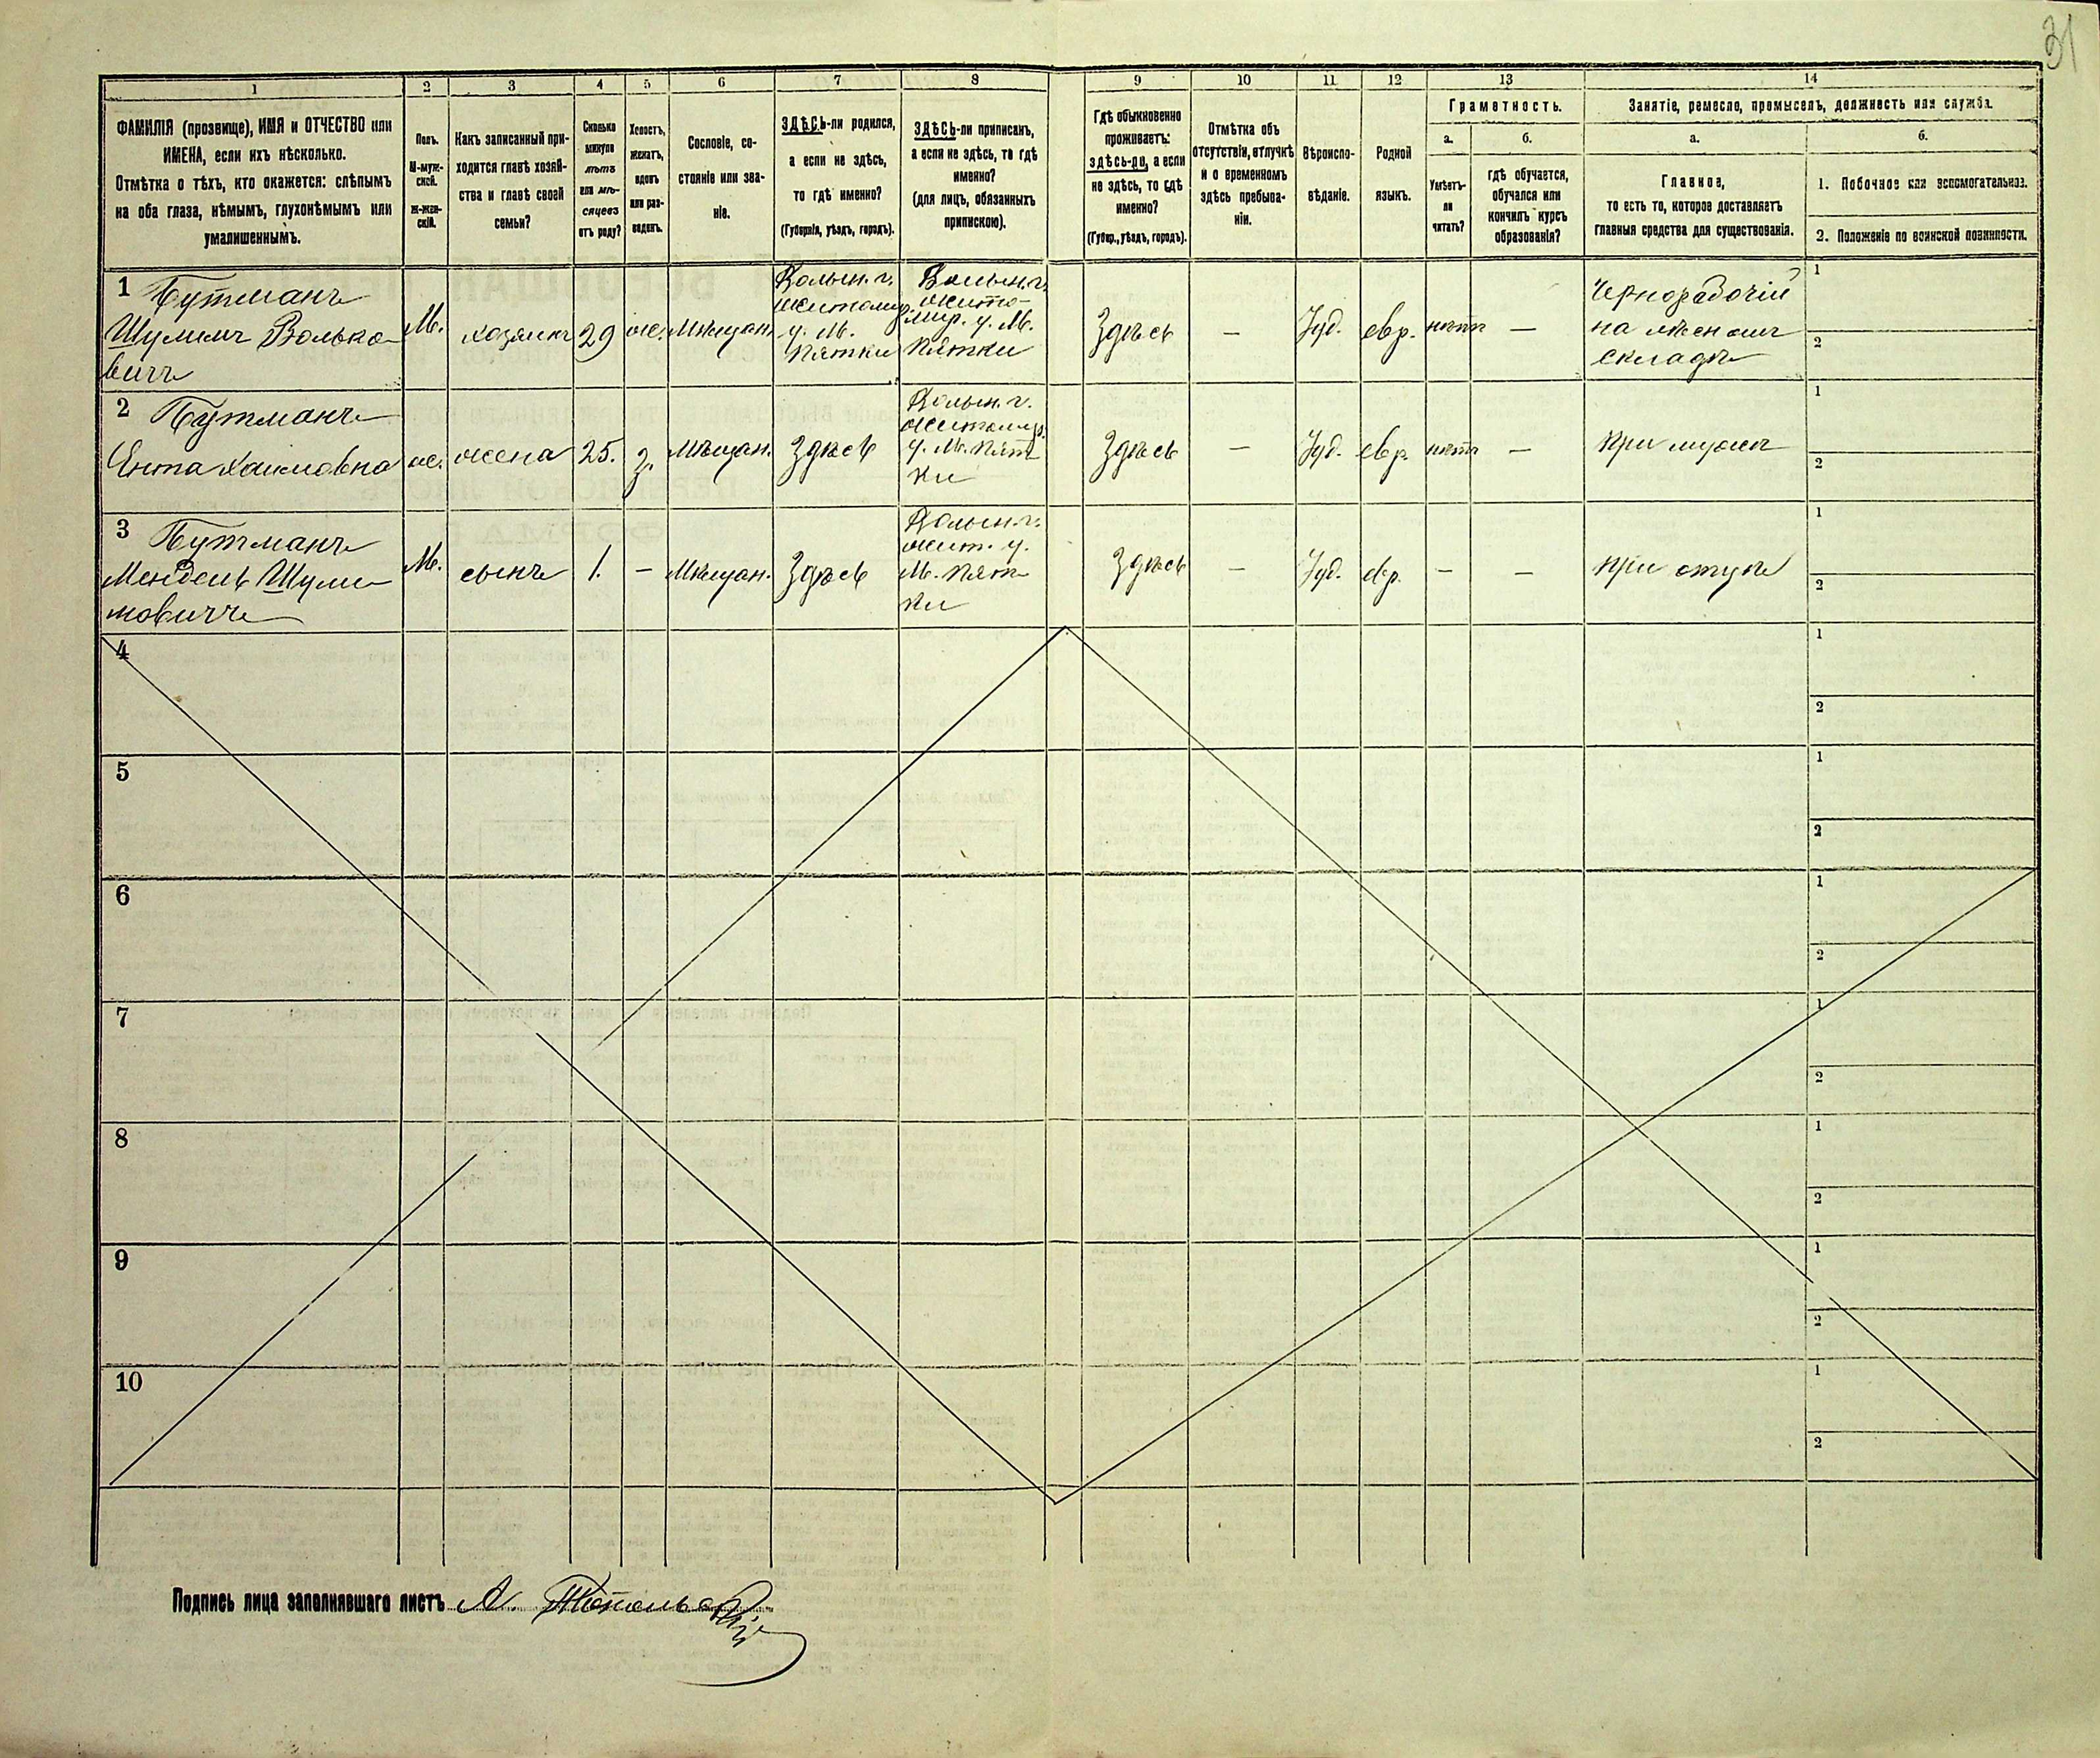 31
1
2
3
4
5
6
7
8
9
10
11
12
13
14
ФАМИЛІЯ (прозвище), ИМЯ и ОТЧЕСТВО или
ИМЕНА, если ихъ нѣсколько.
Отмѣтка о тѣхъ, кто окажется: слѣпымъ
на оба глаза, нѣмымъ, глухонѣмымъ или
умалишеннымъ.
Полъ.
М-муж-
ской.
Ж-жен-
скій.
Какъ записанный при-
ходится главѣ хозяй-
ства и главѣ своей
семьи?
Сколько
минуло
лѣтъ
или мѣ-
сяцевъ
отъ роду?
Холостъ,
женатъ,
вдовъ
или раз-
веденъ.
Сословіе, со-
стояніе или зва-
ніе.
ЗДѢСЬ-ли родился,
а если не здѣсь,
то гдѣ именно?
(Губернія, уѣздъ, городъ).
ЗДѢСЬ-ли приписанъ,
а если не здѣсь, то гдѣ
именно?
(для лицъ, обязанныхъ
припискою).
Гдѣ обыкновенно
проживаетъ:
здѣсь-ли, а если
не здѣсь, то гдѣ
именно?
(Губер., уѣздъ, городъ).
Отмѣтка объ
отсутствіи, отлучкѣ
и о временномъ
здѣсь пребыва-
ніи.
Вѣроиспо-
вѣданіе.
Родной
языкъ.
Грамотность.
а.
Умѣетъ-
ли
читать?
б.
гдѣ обучается,
обучался или
кончилъ курсъ
образованія?
Занятіе, ремесло, промыселъ, должность или служба.
а.
Главное,
то есть то, которое доставляетъ
главныя средства для существованія.
б.
1. Побочное или вспомогательное.
2. Положеніе по воинской повинности.
1 Бутманъ
Шулимъ Волько-
вичъ
М.
хозяинъ
29
ж.
Мѣщан.
Волын. г.
Житомир.
у. М.
Пятки
Волын. г.
Жито-
мир. у. М.
Пятки
Здѣсь
—
Іуд.
евр.
нѣтъ
—
Чернорабочій
на лѣсномъ
складѣ
1
2
2 Бутманъ
Ента Хаимовна
ж.
жена
25.
з.
Мѣщан.
Здѣсь
Волын. г.
Житомир.
у. М. Пят-
ки
Здѣсь
—
Іуд.
евр.
нѣтъ
—
при мужѣ
1
2
3 Бутманъ
Мендель Шули-
мовичъ
М.
сынъ
1.
—
Мѣщан.
Здѣсь
Волын. г.
Жит. у.
М. Пят-
ки
Здѣсь
—
Іуд.
евр.
—
—
при отцѣ
1
2
4
1
2
5
1
2
6
1
2
7
1
2
8
1
2
9
1
2
10
1
2
Подпись лица заполнявшаго листъ А.